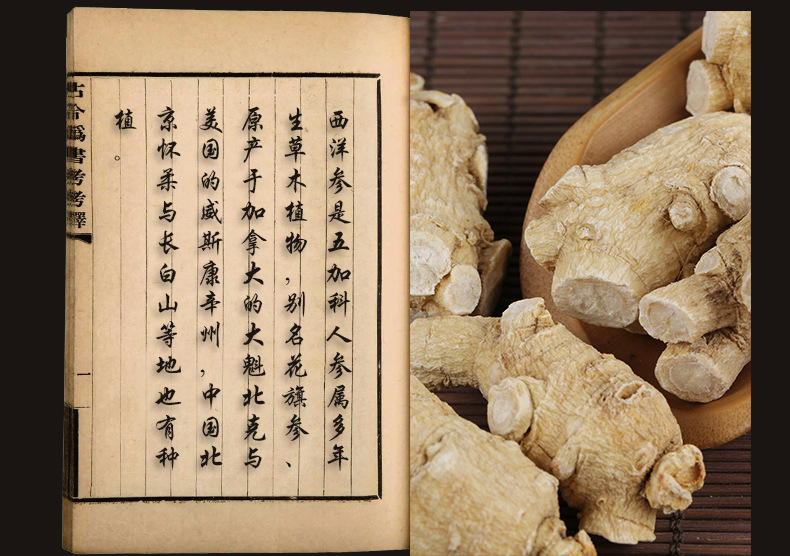 西洋参是五加科人参属多年
生草木植物，别名花旗参、
原产于加拿大的大魁北克与
美国的威斯康辛州，中国北
京怀柔与长白山等地也有种
植。
古今僞書考考釋
一